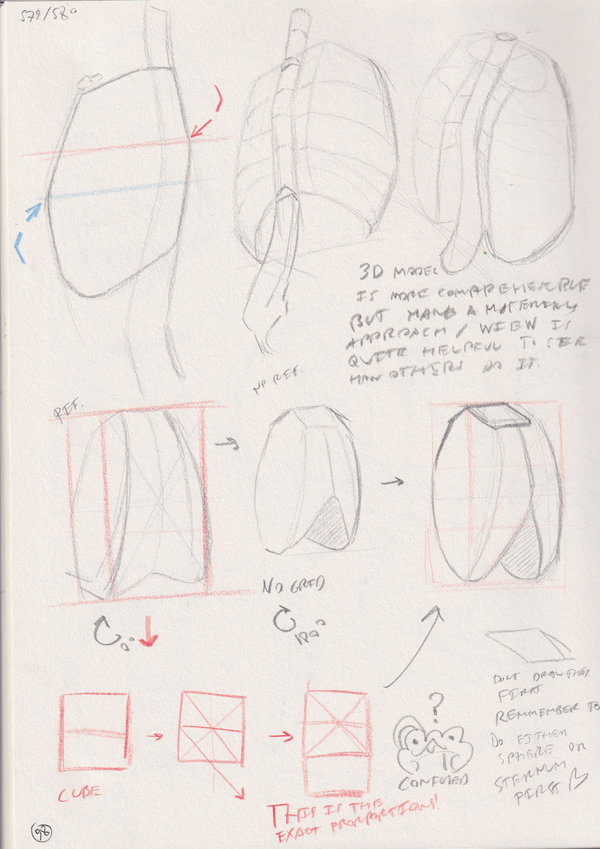 579/580
3D MODEL
IS MORE COMPREHENSIBLE
BUT MANO A MATERING
APPROACH / WIEW IS
QUITE HELPFUL TO SEE
HOW OTHERS DO IT.
NO REF.
REF.
NO GRID
0°
180°
?
CONFUSED
DONT DRAW THIS
FIRST
REMMEMBER TO
DO EITHER
SPHERE OR
STERNUM
FIRST
CUBE
THIS IS THE
EXACT PROPORTIONS!